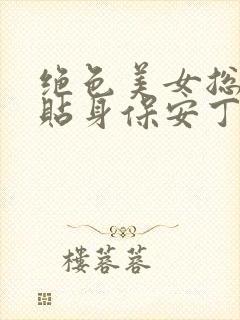 绝色美女总
贴身保安丁
樓蓉蓉